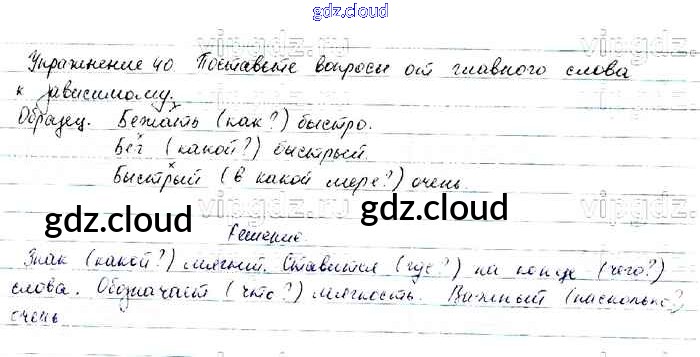 gdz.cloud
vipgdz.ru
Упражнение 40. Поставьте вопросы от главного слова
к зависимому.
Образец. Бежать (как?) быстро.
Бег (какой?) быстрый.
Быстрый (в какой мере?) очень.
gdz.cloud gdz.cloud
Решение.
Знак (какой?) мягкий. Ставится (где?) на конце (чего?)
слова. Обозначает (что?) мягкость. Важный (насколько?)
очень